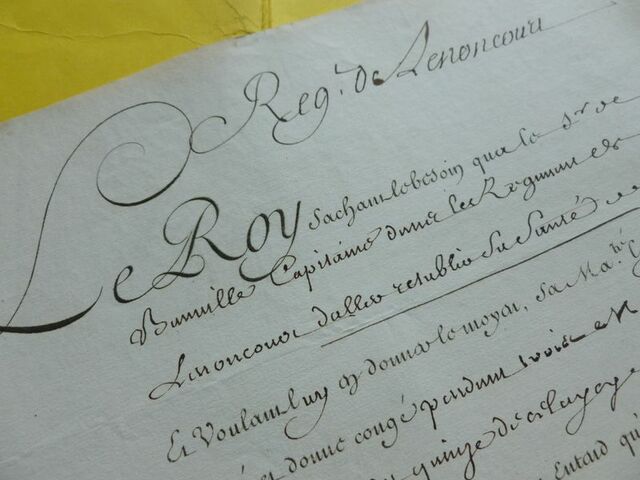 Reg.t de Lenoncourt
Le Roy sachant le besoin que le S.r de
Banville Capitaine dans les Regiment de
Lenoncour d'aller retablir sa Santé
Et Voulant luy en donner le moyen, Sa Ma.té
et donne congé pendant trois
quinze de
Entend qu